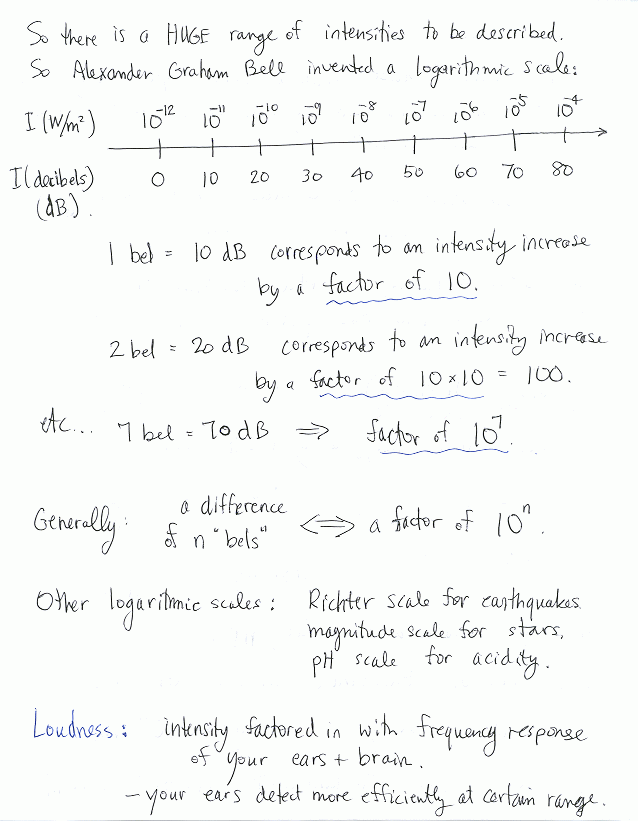 So there is a HUGE range of intensities to be described.
So Alexander Graham Bell invented a logarithmic scale:
I (W/m²) 10⁻¹² 10⁻¹¹ 10⁻¹⁰ 10⁻⁹ 10⁻⁸ 10⁻⁷ 10⁻⁶ 10⁻⁵ 10⁻⁴
I (decibels) 0 10 20 30 40 50 60 70 80
(dB).
1 bel = 10 dB corresponds to an intensity increase
by a factor of 10.
2 bel = 20 dB corresponds to an intensity increase
by a factor of 10 × 10 = 100.
etc... 7 bel = 70 dB ⇒ factor of 10⁷.
Generally: a difference
of n "bels" ⇔ a factor of 10ⁿ.
Other logarithmic scales: Richter scale for earthquakes
magnitude scale for stars,
pH scale for acidity.
Loudness: intensity factored in with frequency response
of your ears + brain.
- your ears detect more efficiently at certain range.